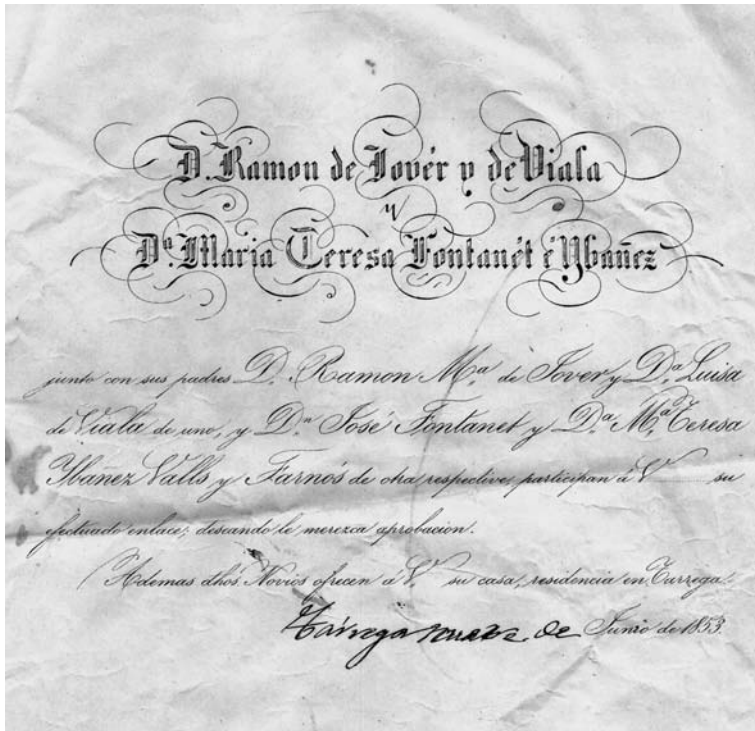 D. Ramon de Jovér y de Viala
y
Dª. Maria Teresa Fontanét é Ybañez
junto con sus padres D. Ramon Mª. de Jover y Dª. Luisa
de Viala de uno, y Dⁿ. José Fontanet y Dª. Mª. Teresa
Ybañez Valls y Farnós de otra respective, participan á V. su
efectuado enlace; deseando le merezca aprobacion.
Ademas dhos. Novios ofrecen á V. su casa, residencia en Tarrega.
Tárrega nueve de Junio de 1853.